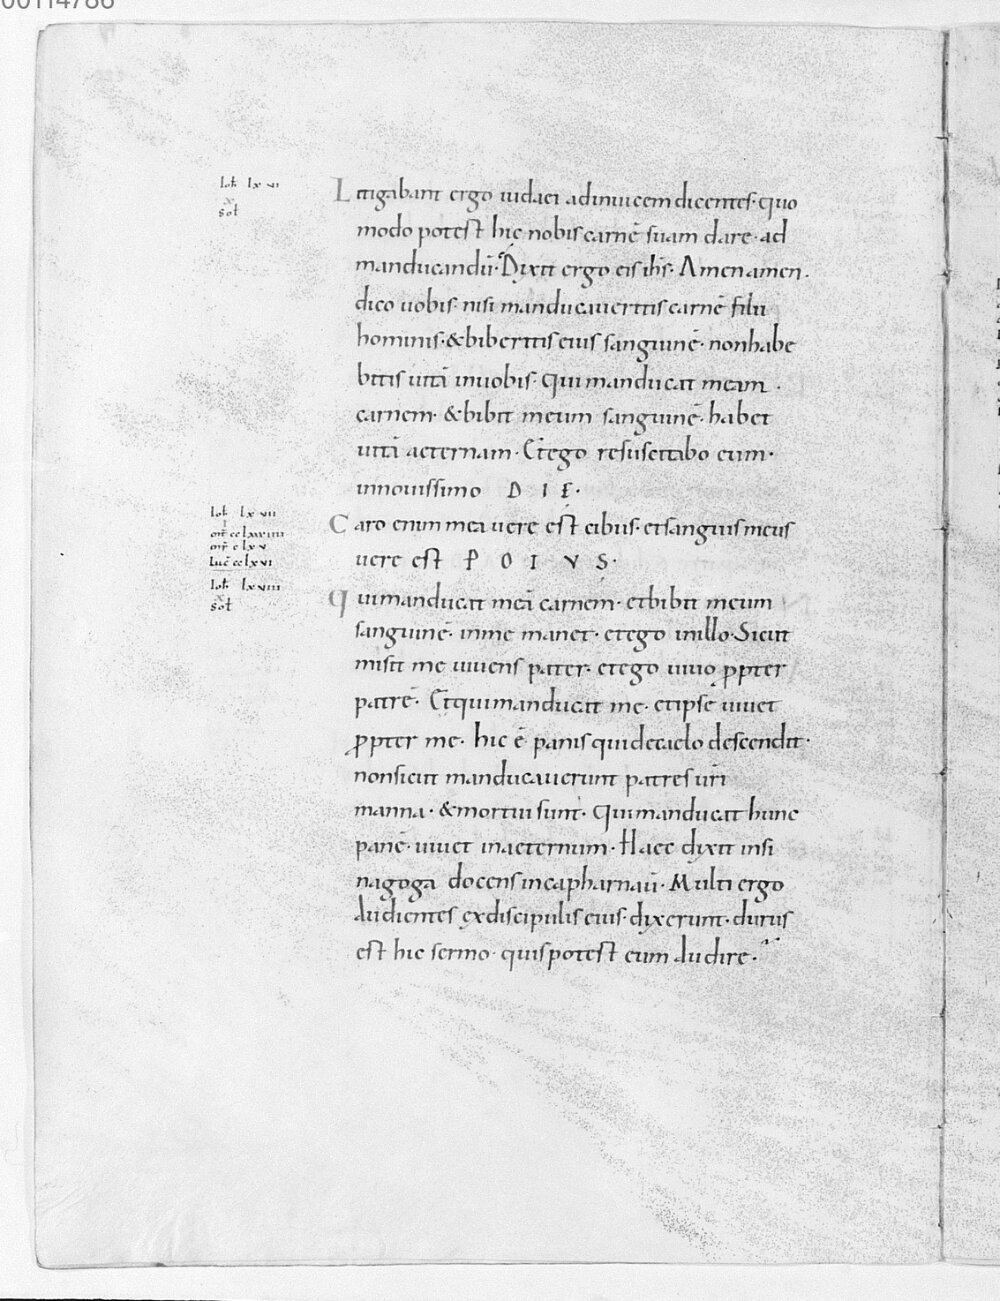 00114786
Ioh lxvi
x
sol
Litigabant ergo iudaei adinuicem dicentes· quo
modo potest hic nobis carnē suam dare· ad
manducandū· Dixit ergo eis ih̄s· Amen amen·
dico uobis· nisi manducaueritis carnē filii
hominis· & biberitis eius sanguinē· non habe
bitis uitā in uobis· Qui manducat meam·
carnem· & bibit meum sanguinē· habet
uitā aeternam· Et ego resuscitabo eum·
in nouissimo D I E·
Ioh lxvii
I
mr̄ cclxxxiiii
mr̄ clxv
Luc̄ cclxvi
Caro enim mea uere est cibus· et sanguis meus
uere est P O T V S·
Ioh lxviii
x
sol
Qui manducat meā carnem· et bibit meum
sanguinē· in me manet· et ego in illo· Sicut
misit me uiuens pater· et ego uiuo ꝓpter
patrē· Et qui manducat me· et ipse uiuet
ꝓpter me· hic ē panis qui de caelo descendit·
non sicut manducauerunt patres ur̄i
manna· & mortui sunt· Qui manducat hunc
panē· uiuet in aeternum· Haec dixit in si
nagoga docens in capharnaū· Multi ergo
Audientes ex discipulis eius· dixerunt· durus
est hic sermo· quis potest eum Audire·